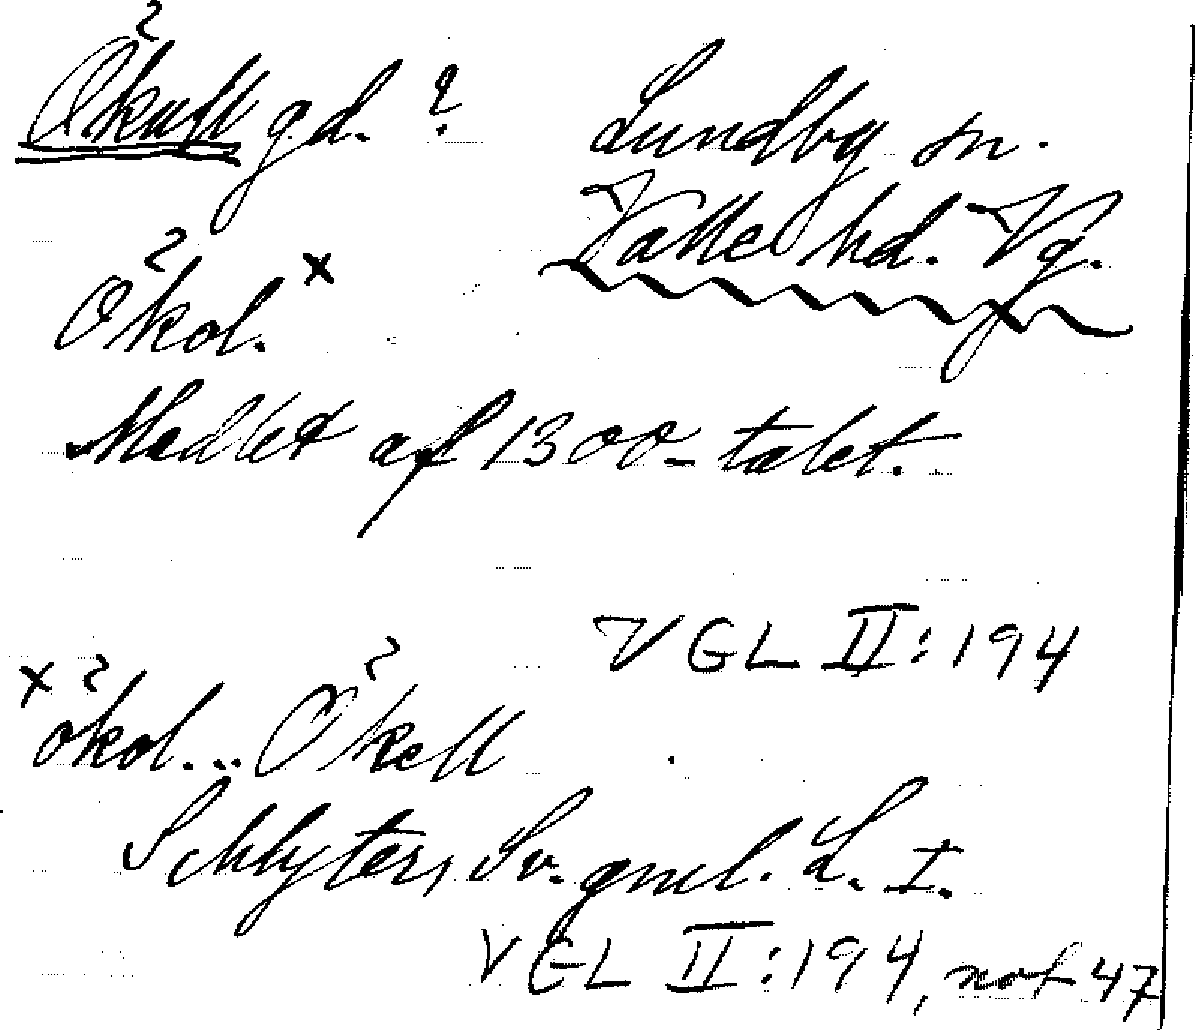 Økull gd. ? Lundby sn.
Valle hd. Vg.
Økol. x
Medlet af 1300-talet.
VGL II:194
x økol... Økell
Schlyter, Sv. gml. L. I.
VGL II:194, not 47